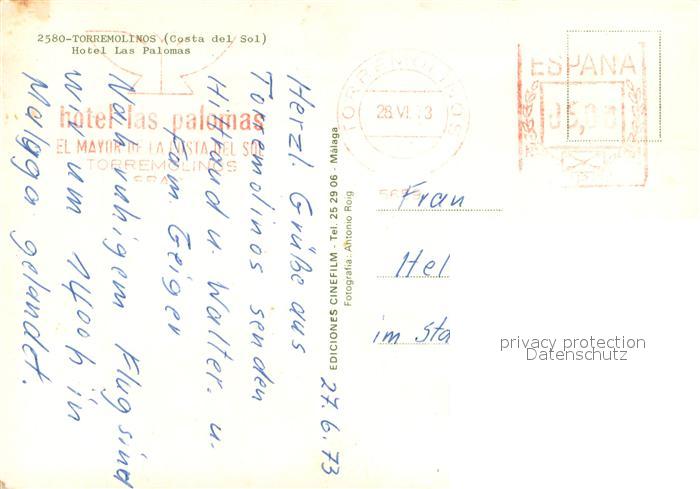 2580-TORREMOLINOS (Costa del Sol)
Hotel Las Palomas
hotel las palomas
EL MAYOR DE LA COSTA DEL SOL
TORREMOLINOS
TORREMOLINOS
28.VI.73
ESPAÑA
05,00
EDICIONES CINEFILM - Tel. 25 29 06 - Málaga
Fotografía: Antonio Roig
27.6.73
Herzl. Grüße aus
Torremolinos senden
Hiltraud u. Walter. u.
Fam Geiger
Nach ruhigem Flug sind
wir um 1400h in
Malaga gelandet.
Frau
Hel
im Sta
privacy protection
Datenschutz